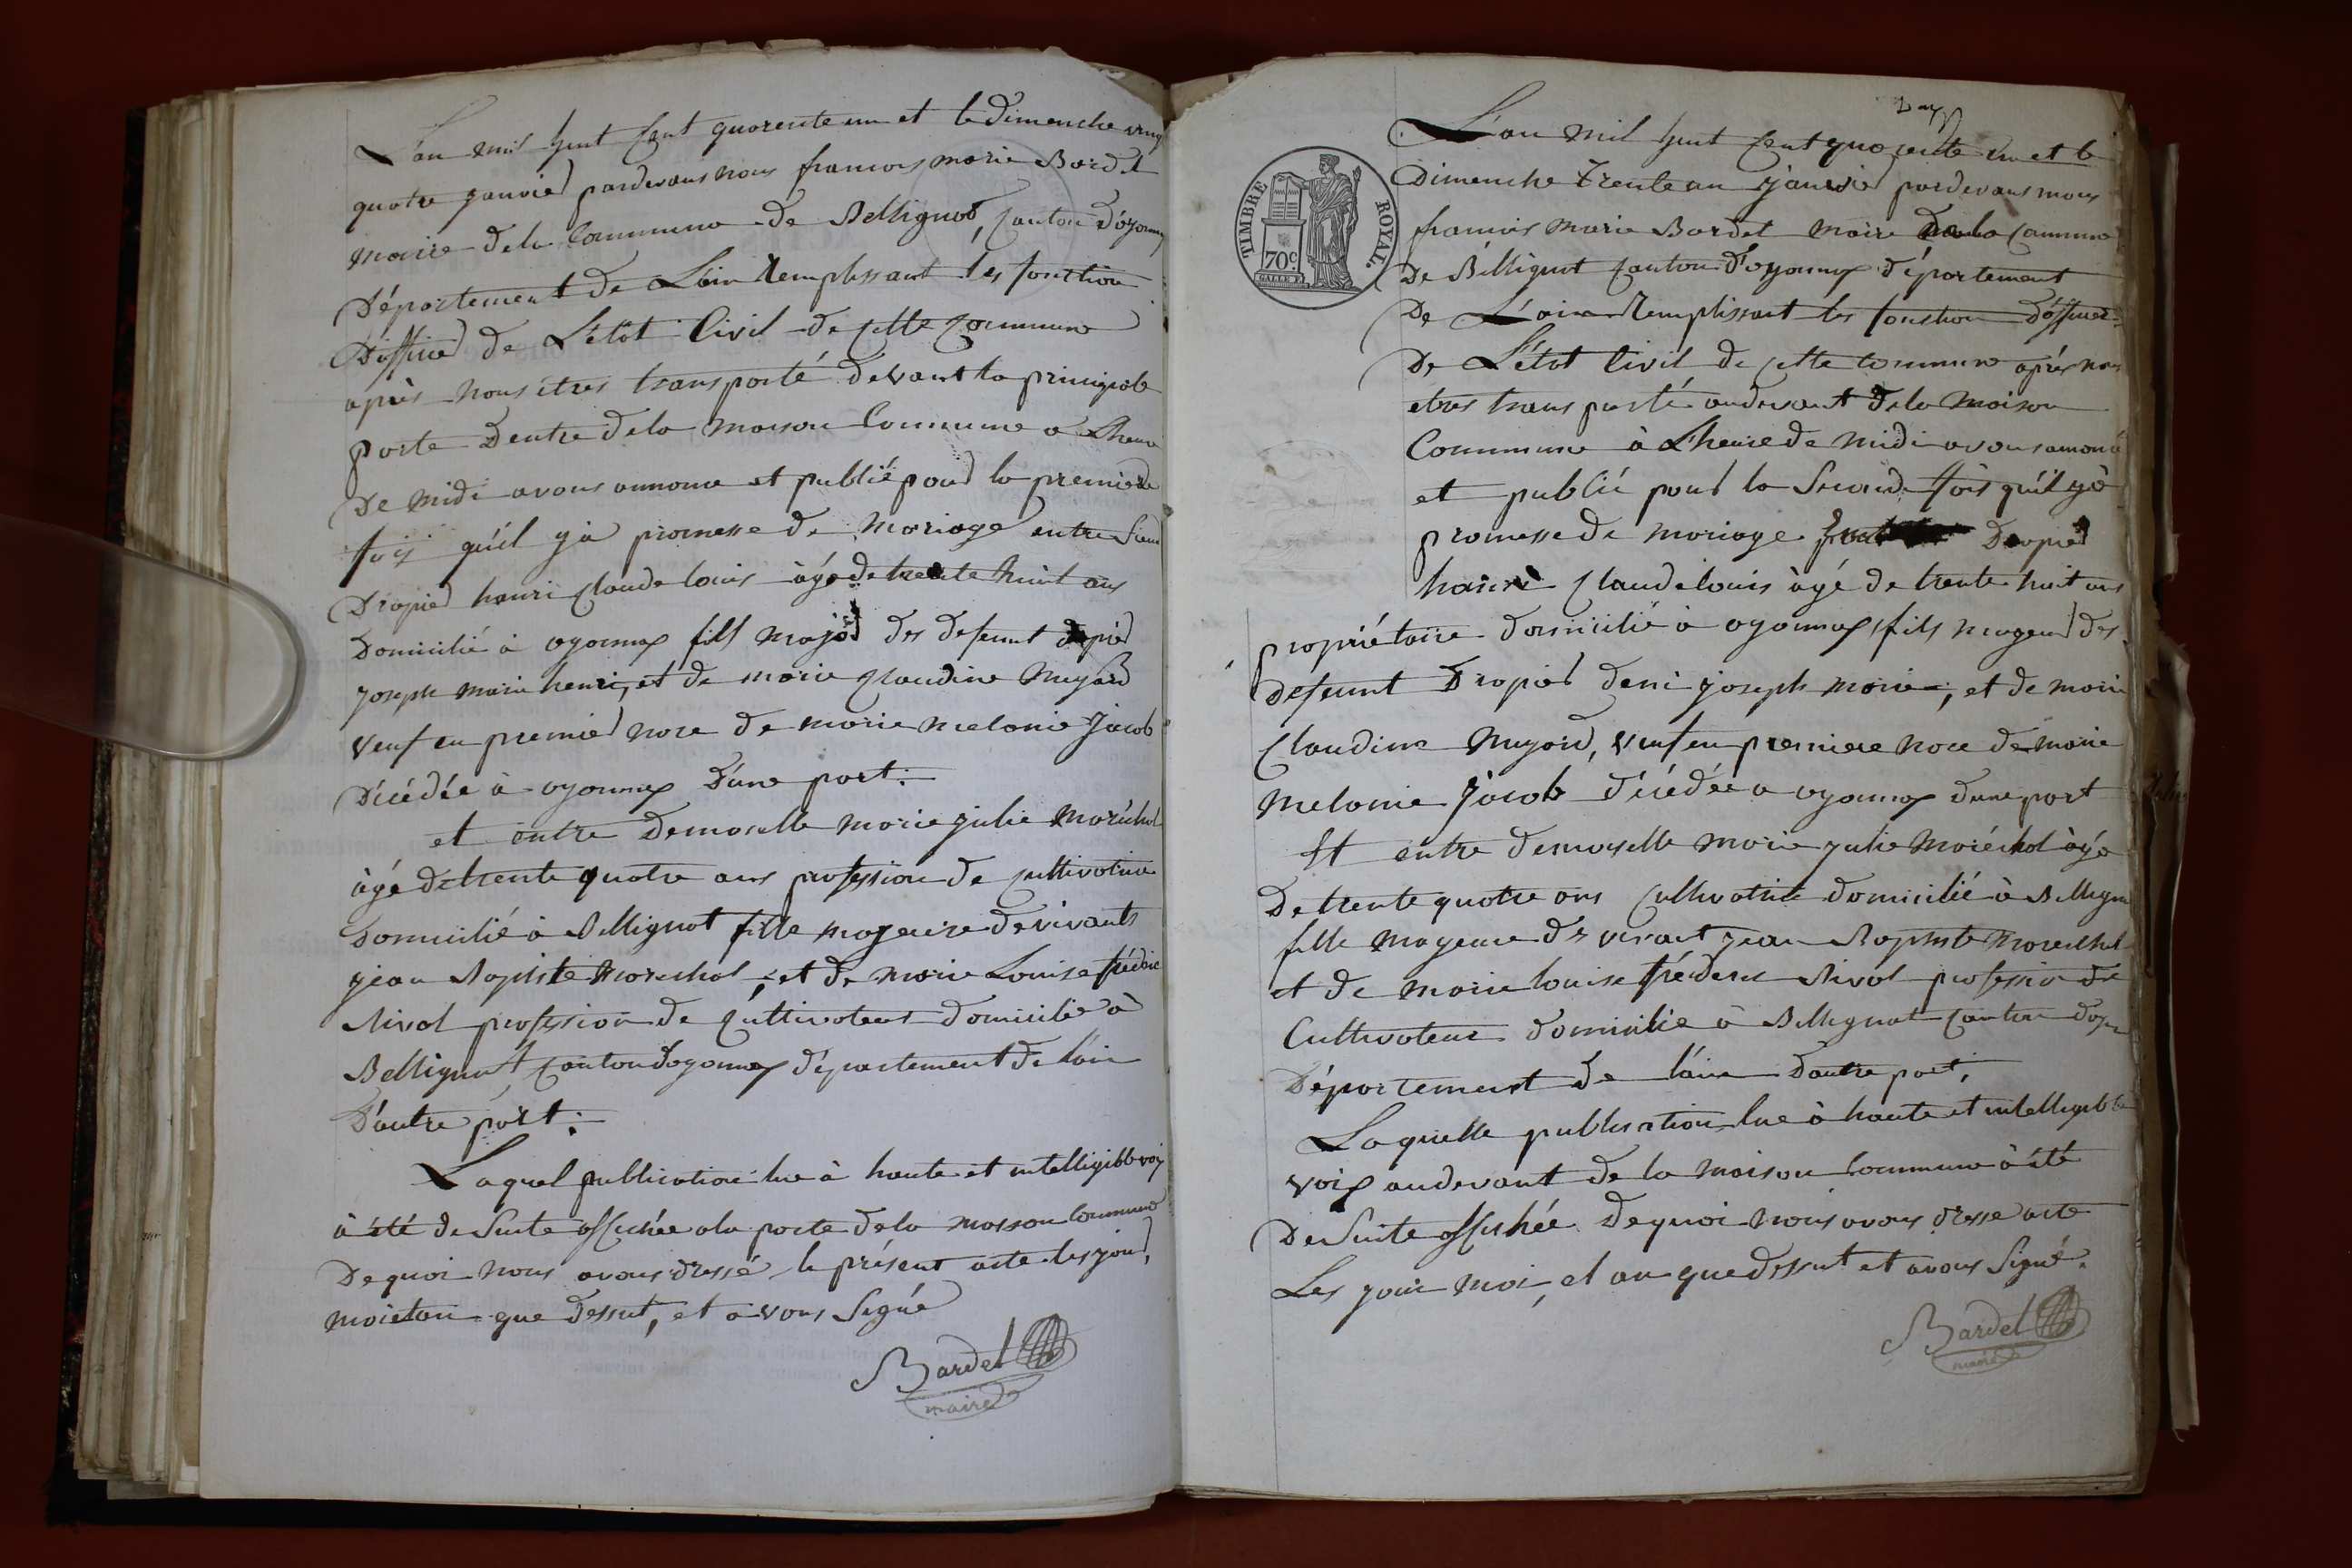 L'an mil huit Cent quarente un et le Dimenche vingt
quatre janvier pardevans nous francois marie Bardet
maire dela Commune de Bellignat, Canton d'oyonnax
Département de L'ain Remplissant les fonction
D'officier de L'état Civil de cette Commune
après nous étres transporté devant la principale
porte Dentre dela maison Commune a Lheure
De midi avons annonce et publié pour la premiere
fois qu'il y à promesse de Mariage entre Sieur
Drapier henri Claude louis àgé de trente huit ans
Domicilié à oyonnax fils major des defunt drapier
joseph marie henri, et de marie Claudine Nuyard
Veuf en premier noce de marie melanie Jacob
Décédée à oyonnax D'une part:
et entre Demoiselle marie julie Maréchal
àgé de trente quatre ans profession de cultivatrice
Domicilié à Bellignat fille majeure de vivants
jean Baptiste Marechal, et de marie Louise frédéric
Nivol profession de Cultivateur Domicilié à
Bellignat, Canton Doyonnax département de l'ain
D'autre part:
Laquel publication lue à haute et intelligible voix
à été de Suite affichée a la porte dela maison Commune
De quoi nous avons dressé le présent acte les jour,
mois et an que dessut, et avons Signé
Bardet
maire
L'an mil huit Cent quarente un et le
Dimenche Trente un janvier pardevans nous
TIMBRE ROYAL.
70c
francois Marie Bardet Maire de la Commune
De Bellignat Canton d'oyonnax département
De L'ain Remplissant les fonction d'officier
De L'état Civil de cette Commune après nous
etres transporté audevant dela Maison
Commune à Lheure de midi avons annoncé
et publié pour la Seconde fois qu'il y à
promesse de mariage Drapier
hanri Claude louis àgé de trente huit ans
propriétaire domicilié à oyonnax, fils mageur des
défunt Drapier deni joseph marie, et de marie
Claudine Nuyard, veuf en premiere noce de marie
Melanie Jacob décédée a oyonnax d'une part
Et entre demoiselle marie julie Maréchal àgé
De trente quatre ans Cultivatrice domicilié à Bellignat
fille Mageure de vivant jean Baptiste Marechal
et de marie louise fréderic Nivol profession de
Cultivateur domicilié à Bellignat Canton doyn
Département de l'ain D'autre part,
Laquelle publication lue à haute et intelligible
voix audevant de la maison Commune à été
De Suite affichée De quoi nous avons dresse acte
Les jour moi, et an que dessut et avons Signé.
Bardet
maire